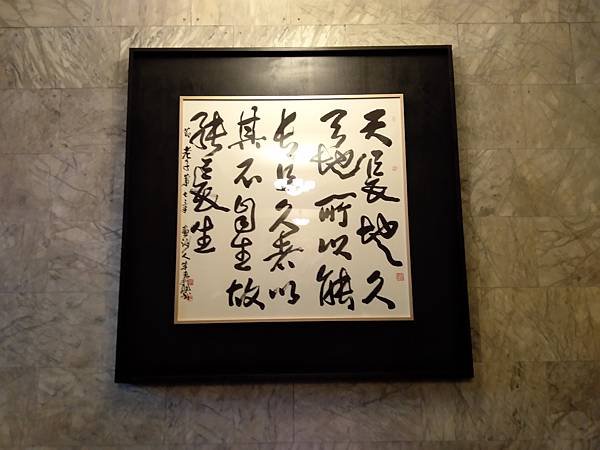 天長地久
天地所以能
長且久者以
其不自生故
能長生
老子第七章